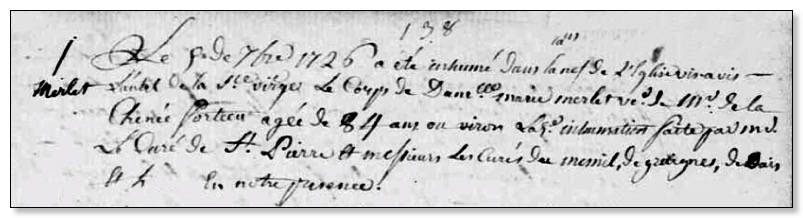 138
1 Le 5e de 7bre 1726 a été inhumé dans la nef de L'Eglise vis avis
Merlet
L'autel de la Ste vierge Le Corps de Damelle marie merlet ve. de Mr. de la
Chenée fortieu agée de 84 ans ou viron inhumation faite par mr.
Le Curé de St. Pierre et messieurs Les Curés du mesnil, de
En notre presence.